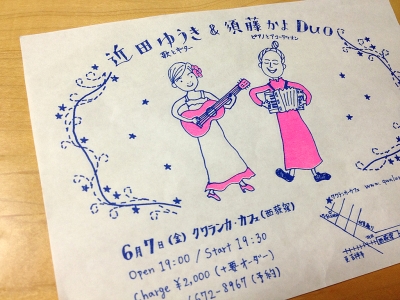 近田ゆうき & 須藤かよ Duo
歌とギター ピアノとアコーディオン
6月7日(金) クワランカ・カフェ(西荻窪)
Open 19:00 / Start 19:30
Charge ¥2,000 (+要オーダー)
672-8967 (予約)
クワランカ・カフェ